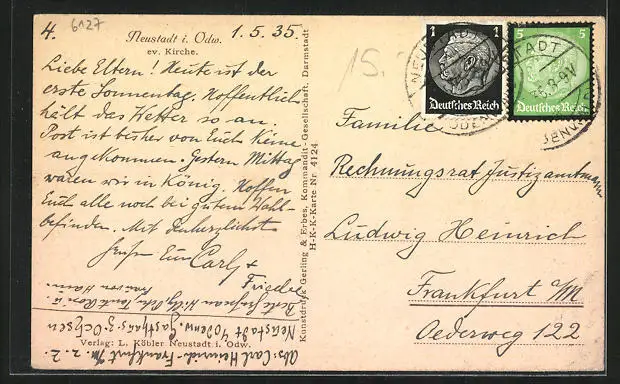 6127
4.
Neustadt i. Odw.
ev. Kirche.
1.5.35.
Liebe Eltern! Heute ist der
erste Sonnentag. Hoffentlich
hält das Wetter so an.
Post ist bisher von Euch keine
angekommen. Gestern Mittag
waren wir in König. Hoffen
Euch alle noch bei gutem Wohl-
befinden. Mit
Carl +
Friedel
Abs: Carl Heinrich - Frankfurt
Neustadt Odenw. Gasthaus z. Ochsen
Verlag: L. Köbler Neustadt i. Odw.
Kunstdruck Gerling & Erbes, Kommandit-Gesellschaft, Darmstadt
H-K-K-Karte Nr. 4124
15.
1
Deutsches Reich
5
Deutsches Reich
Familie
Rechnungsrat Justizamtmann
Ludwig Heinrich
Frankfurt a/M
Oederweg 122